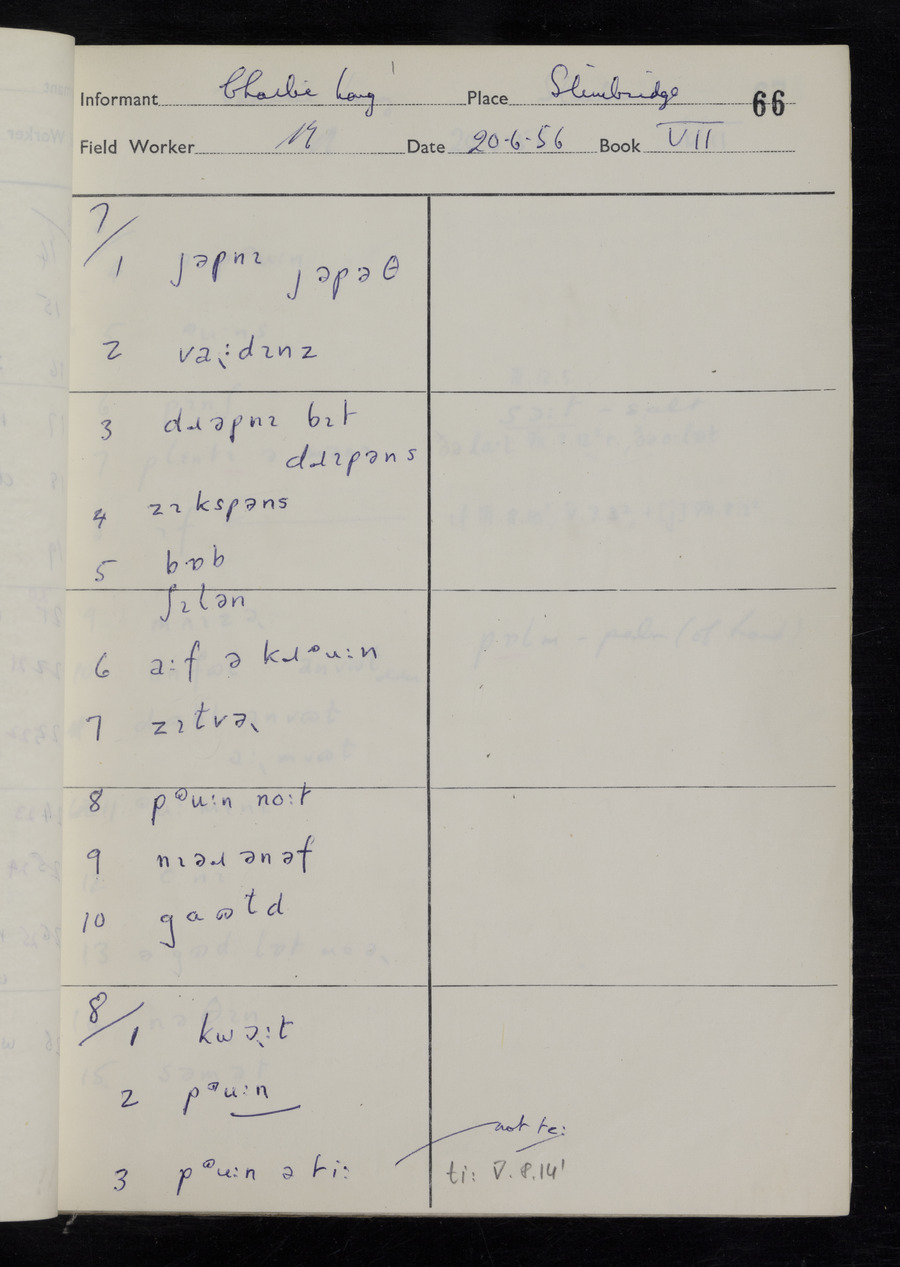 Informant Charlie Long Place Slimbridge 66
Field Worker Date 20·6·56 Book VII
7/
1 ʃəpnɪ ʃəpəθ
2 və˞:dɪnz
3 dɹəpnɪ bɪt
dɹɪpəns
4 zɪkspəns
5 bɒb
ʃɪlən
6 a:f ə kɹᵊu:n
7 zɪtvə˞
8 pᵊu:n no:t
9 nɪəɹ ənəf
10 gaʊtd
8/
1 kwə˞:t
2 pᵊu:n
3 pᵊu:n ə ti:
not te:
ti: V.8.14'